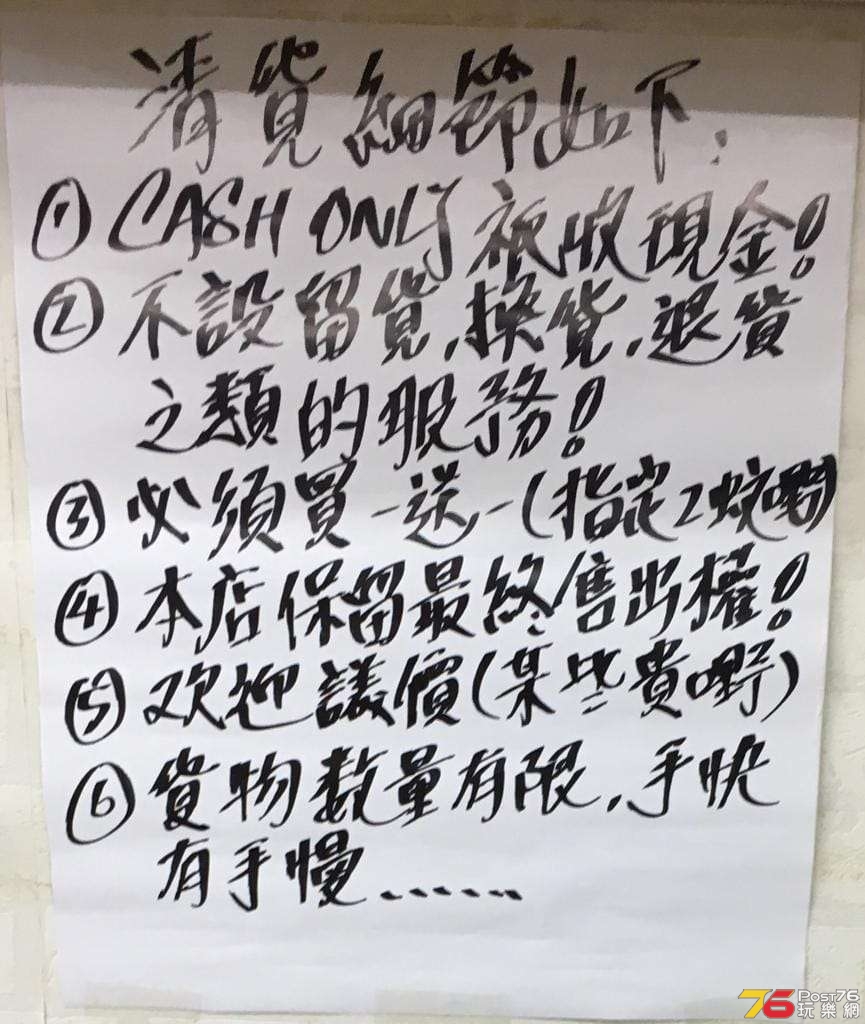 清貨細節如下：
① CASH ONLY 祗收現金！
② 不設留貨，換貨，退貨
之類的服務！
③ 必須買一送一（指定2蚊嘢）
④ 本店保留最終售出權！
⑤ 欢迎議價（某些貴嘢）
⑥ 貨物数量有限，手快
有手慢......
76 POST76
玩樂網